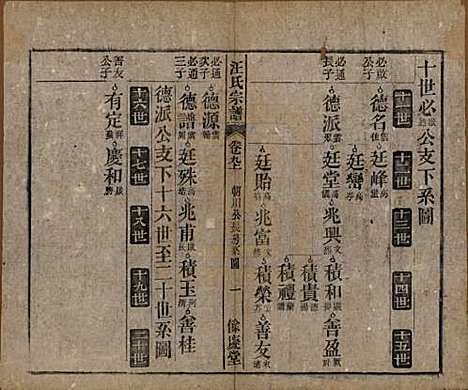 十世必啟公支下系圖
十一世 十二世 十三世 十四世 十五世
必啟公子
德名 廷峰
廷巒
必通長子
德派 廷堂 兆興 積和 善盈
積貴
積禮
廷貽 兆富 積榮 善友
汪氏宗譜 卷九 朝川公長房系圖 一 餘慶堂
必通次子
德源
必通三子
德譜 廷殊 兆甫 積玉 善桂
德派公支下十六世至二十世系圖
十六世 十七世 十八世 十九世 二十世
善友公子
有定 慶和